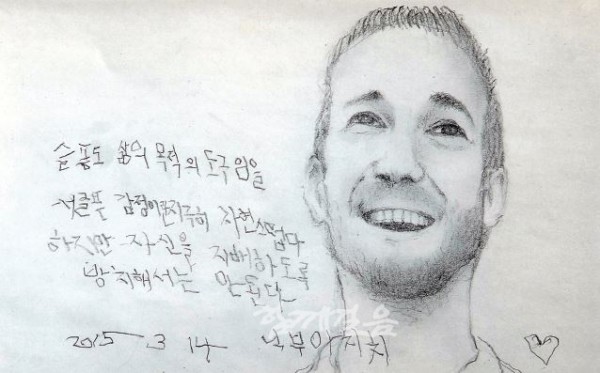 슬픔도 삶의 목적의 도구임을
서글픈 감정이란 지극히 자연스럽다
하지만 자신을 지배하도록
방치해서는 안된다
2015 . 3 14 닉부이치치
함께걸음